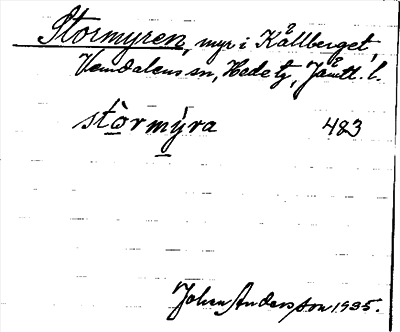 Stormyren, myr i Kållberget,
Vemdalens sn, Hede tg, Jämtl. l.
stòrmýra 483
Johan Andersson 1935.